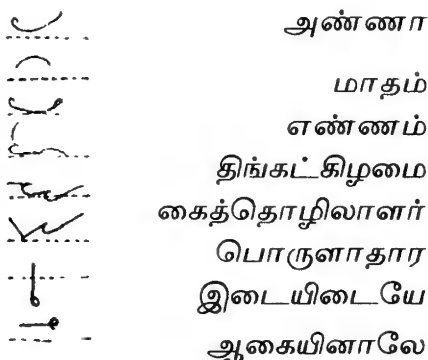 அண்ணா
மாதம்
எண்ணம்
திங்கட்கிழமை
கைத்தொழிலாளர்
பொருளாதார
இடையிடையே
ஆகையினாலே